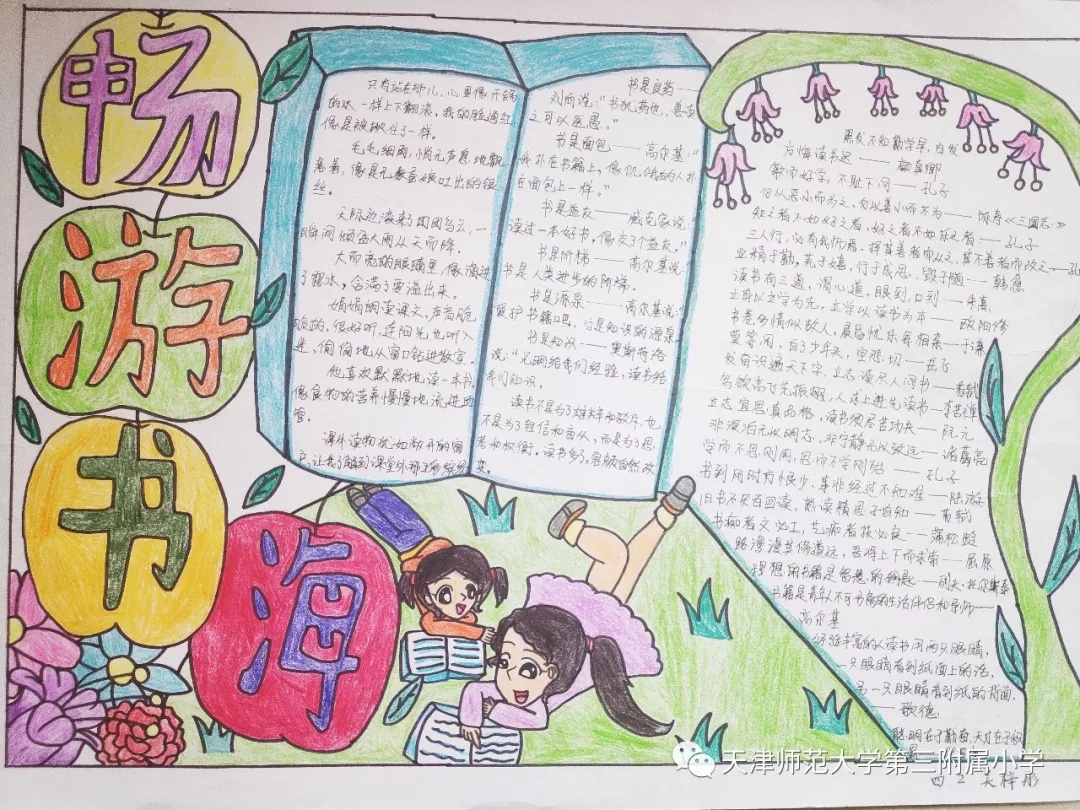 畅
游
书
海
只有站在那儿,心里像开锅
的水一样上下翻滚,我的脸通红
像是被揪住了一样。
毛毛细雨,悄无声息地飘
着,像是无数蚕娘吐出的银
丝。
天际边滚来了团团乌云,一
瞬间倾盆大雨从天而降。
大而亮的眼睛里,像滴进
了露水,含满了要溢出来。
娟娟朗读课文,声音脆
很好听,连阳光也听入
迷,偷偷地从窗口钻进教室。
他喜欢默默地读一本书,
像食物的营养慢慢地流进血
管。
课外读物犹如敞开的窗
户,让我了解到课堂外那五彩缤纷
书是良药——
刘向说:“书犹药也,善读
之可以医愚。”
书是面包——高尔基:“
扑在书籍上,像饥饿的人扑
在面包上一样。”
书是益友——臧克家说:“
读过一本好书,像交了个益友。”
书是阶梯——高尔基说:
书是人类进步的阶梯。
书是源泉——高尔基说:“
爱护书籍吧,它是知识的源泉。
书是知识——奥斯特洛
说:“无网给我们经验,读书给
我们知识。
读书不是为了雄辩和驳斥,也
不是为了轻信和盲从,而是为了思
考和权衡。读书多了,容颜自然改
变。
黑发不知勤学早,白发
方悔读书迟——颜真卿
敏而好学,不耻下问——孔子
勿以恶小而为之,勿以善小而不为——陈寿《三国志》
知之者不如好之者,好之者不如乐之者——孔子
三人行,必有我师焉。择其善者而从之,其不善者而改之——孔
业精于勤,荒于嬉,行于成思,毁于随——韩愈
读书有三道,谓心道,眼到,口到——朱熹
立身以立学为先,立学以读书为本——欧阳修
书卷多情似故人,晨昏忧乐每相亲——于谦
莫等闲,白了少年头,空悲切——岳飞
发奋识遍天下字,立志读尽人间书——苏轼
鸟欲高飞先振翅,人求上进先读书——李苦禅
立志宜思真品格,读书须尽苦功夫——阮元
非淡泊无以明志,非宁静无以致远——诸葛亮
学而不思则罔,思而不学则殆——孔子
书到用时方恨少,事非经过不知难——陆游
旧书不厌百回读,熟读精思子自知——苏轼
书痴者文必工,艺痴者技必良——蒲松龄
路漫漫其修道远,吾将上下而求索——屈原
理想的书籍是智慧的钥匙——列夫·托尔斯泰
书籍是青年人不可分离的生活伴侣和导师——
高尔基
经验丰富的人读书用两只眼睛,
一只眼睛看到纸面上的话,
另一只眼睛看到纸的背面.
——歌德
聪明在于勤奋,天才在于积
天津师范大学第三附属小学
四.2